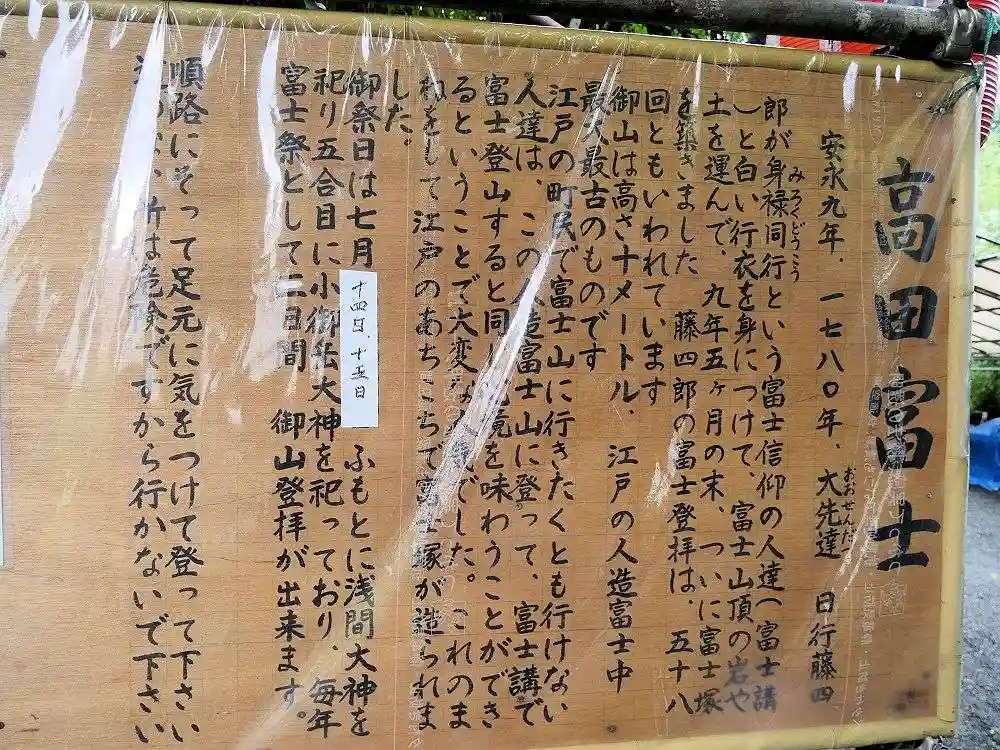 高田富士
安永九年、一七八〇年、大先達 日行藤四
おおせんだつ
郎が身禄同行という富士信仰の人達(富士講
みろくどうこう
しと白い行衣を身につけて、富士山頂の岩や
土を運んで、九年五ヶ月の末、ついに富士塚
を築きました 藤四郎の富士登拝は、五十八
回ともいわれています
御山は高さ十メートル、江戸の人造富士中
最大最古のものです
江戸の町民で富士山に行きたくとも行けない
人達は、この人造富士山に登って、富士講で
富士登山すると同じ境を味わうことができ
るということで大変なでした。これのま
ねをして江戸のあちこちで富士塚が造られま
した。
御祭日は七月十四日、十五日 ふもとに浅間大神を
祀り五合目に小御岳大神を祀っており、毎年
富士祭として二日間 御山登拝が出来ます。
順路にそって足元に気をつけて登って下さい
は危険ですから行かないで下さい